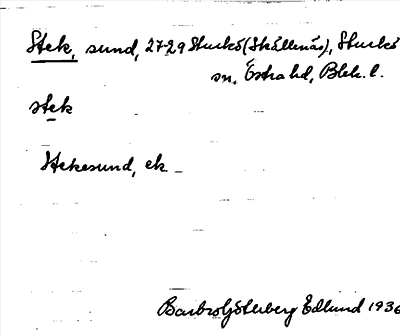 Stek, sund, 27-29 Sturkö (Skällenäs), Sturkö
sn, Östra hd, Blek. l.
stek
Stekesund, ek
Barbro Göterberg Edlund 1936